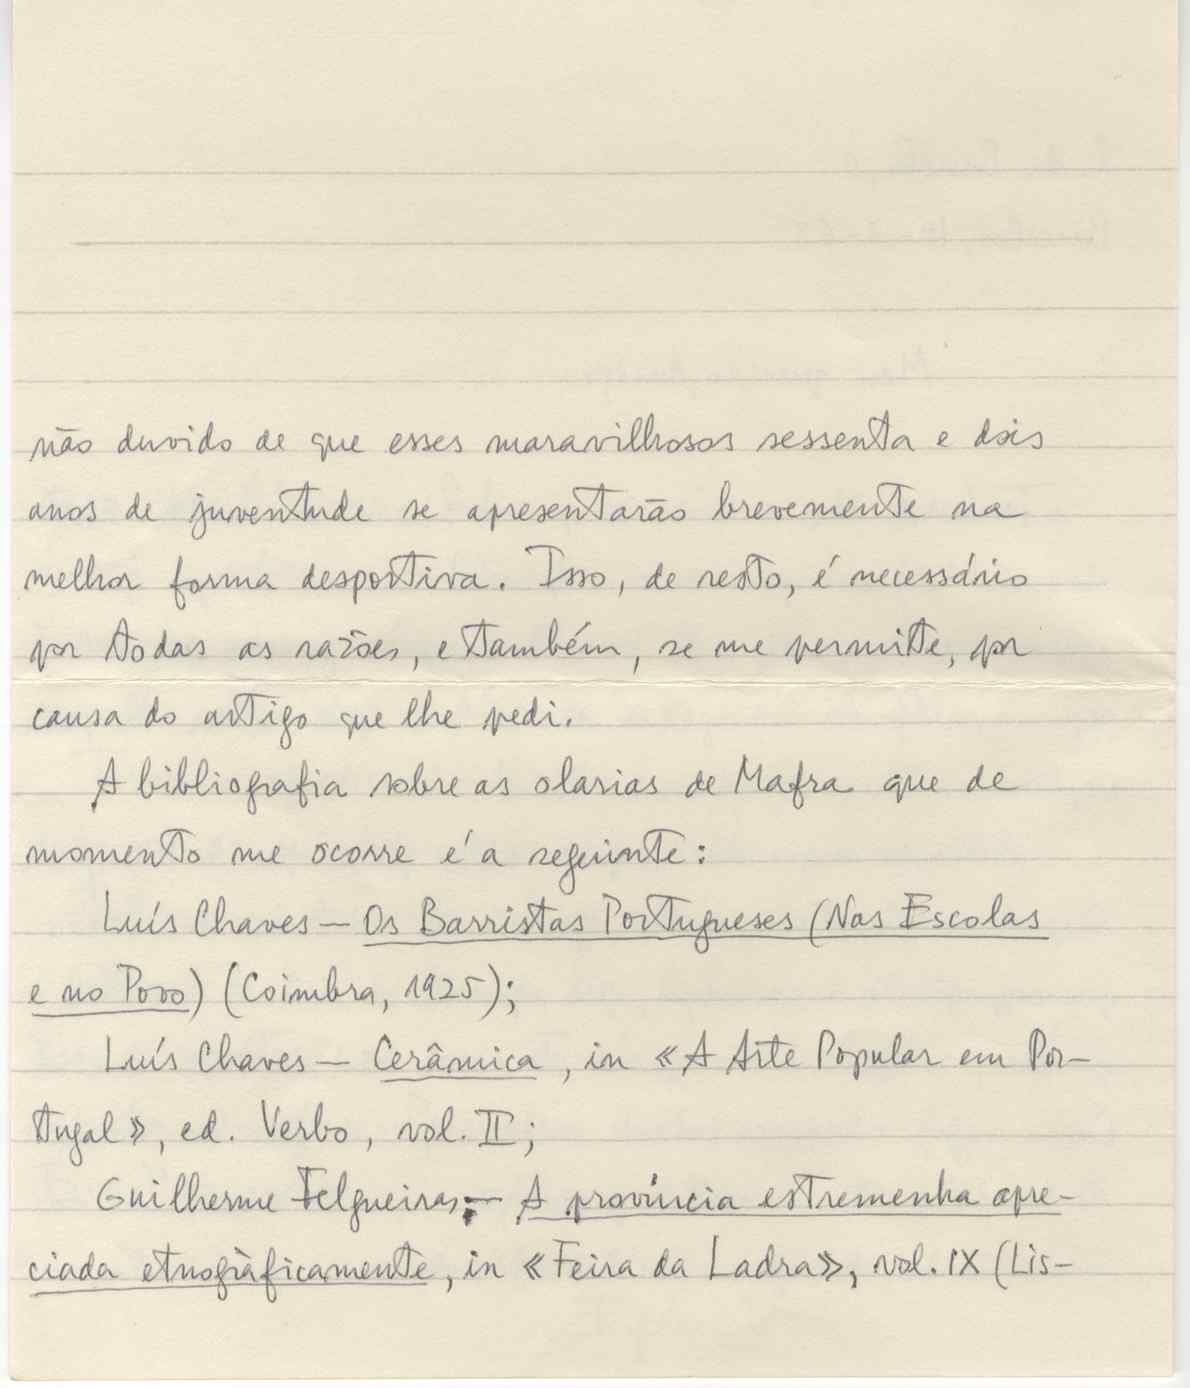 não duvido de que esses maravilhosos sessenta e dois
anos de juventude se apresentarão brevemente na
melhor forma desportiva. Isso, de resto, é necessário
por todas as razões, e também, se me permite, por
causa do artigo que lhe pedi.
A bibliografia sobre as olarias de Mafra que de
momento me ocorre é a seguinte:
Luís Chaves — Os Barristas Portugueses (Nas Escolas
e no Povo) (Coimbra, 1925);
Luís Chaves — Cerâmica, in «A Arte Popular em Por-
tugal», ed. Verbo, vol. II;
Guilherme Felgueiras — A província estremenha apre-
ciada etnogràficamente, in «Feira da Ladra», vol. IX (Lis-